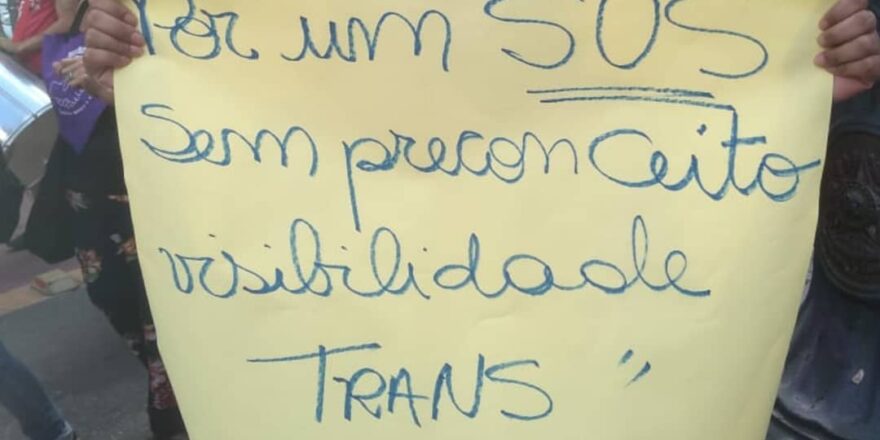 Por um SUS
sem preconceito
visibilidade
TRANS "